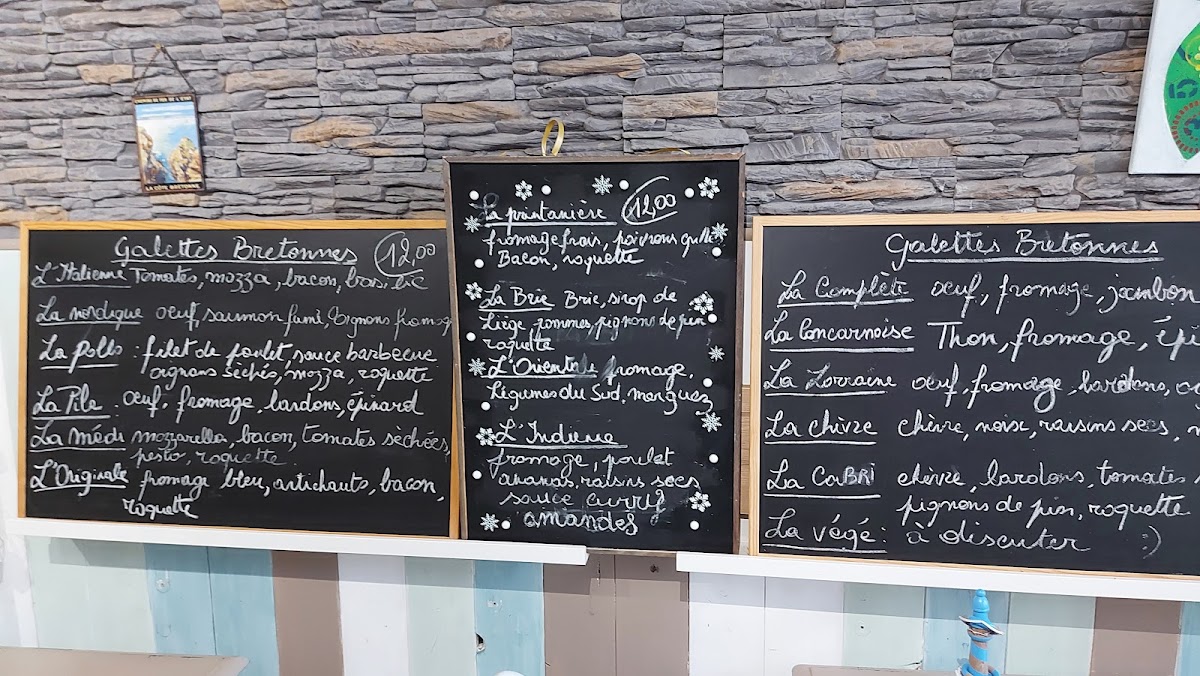 LA CÔTE BRETAGNE
Galettes Bretonnes 12,00
L'Italienne Tomates, mozza, bacon, basilic
La nordique oeuf, saumon fumé, oignons fromage
La Pollo : filet de poulet, sauce barbecue
oignons séchés, mozza, roquette
La Pile : oeuf, fromage, lardons, épinard
La médi mozzarella, bacon, tomates sèchées,
pesto, roquette
L'Originale fromage bleu, artichauts, bacon,
roquette
La printanière 12,00
fromage frais, poivrons grillé
Bacon, roquette
La Brie Brie, sirop de
Liège, pommes, pignons de pin
roquette
L'Orientale fromage,
Légumes du Sud, merguez
L'Indienne
fromage, poulet
ananas, raisins secs
sauce curry
amandes
Galettes Bretonnes
La Complète oeuf, fromage, jambon
La Concarnoise Thon, fromage, épi
La Lorraine oeuf, fromage, lardons,
La chèvre chèvre, noix, raisins secs,
La CaBRi chèvre, lardons, tomates
pignons de pin, roquette
La végé : à discuter :)